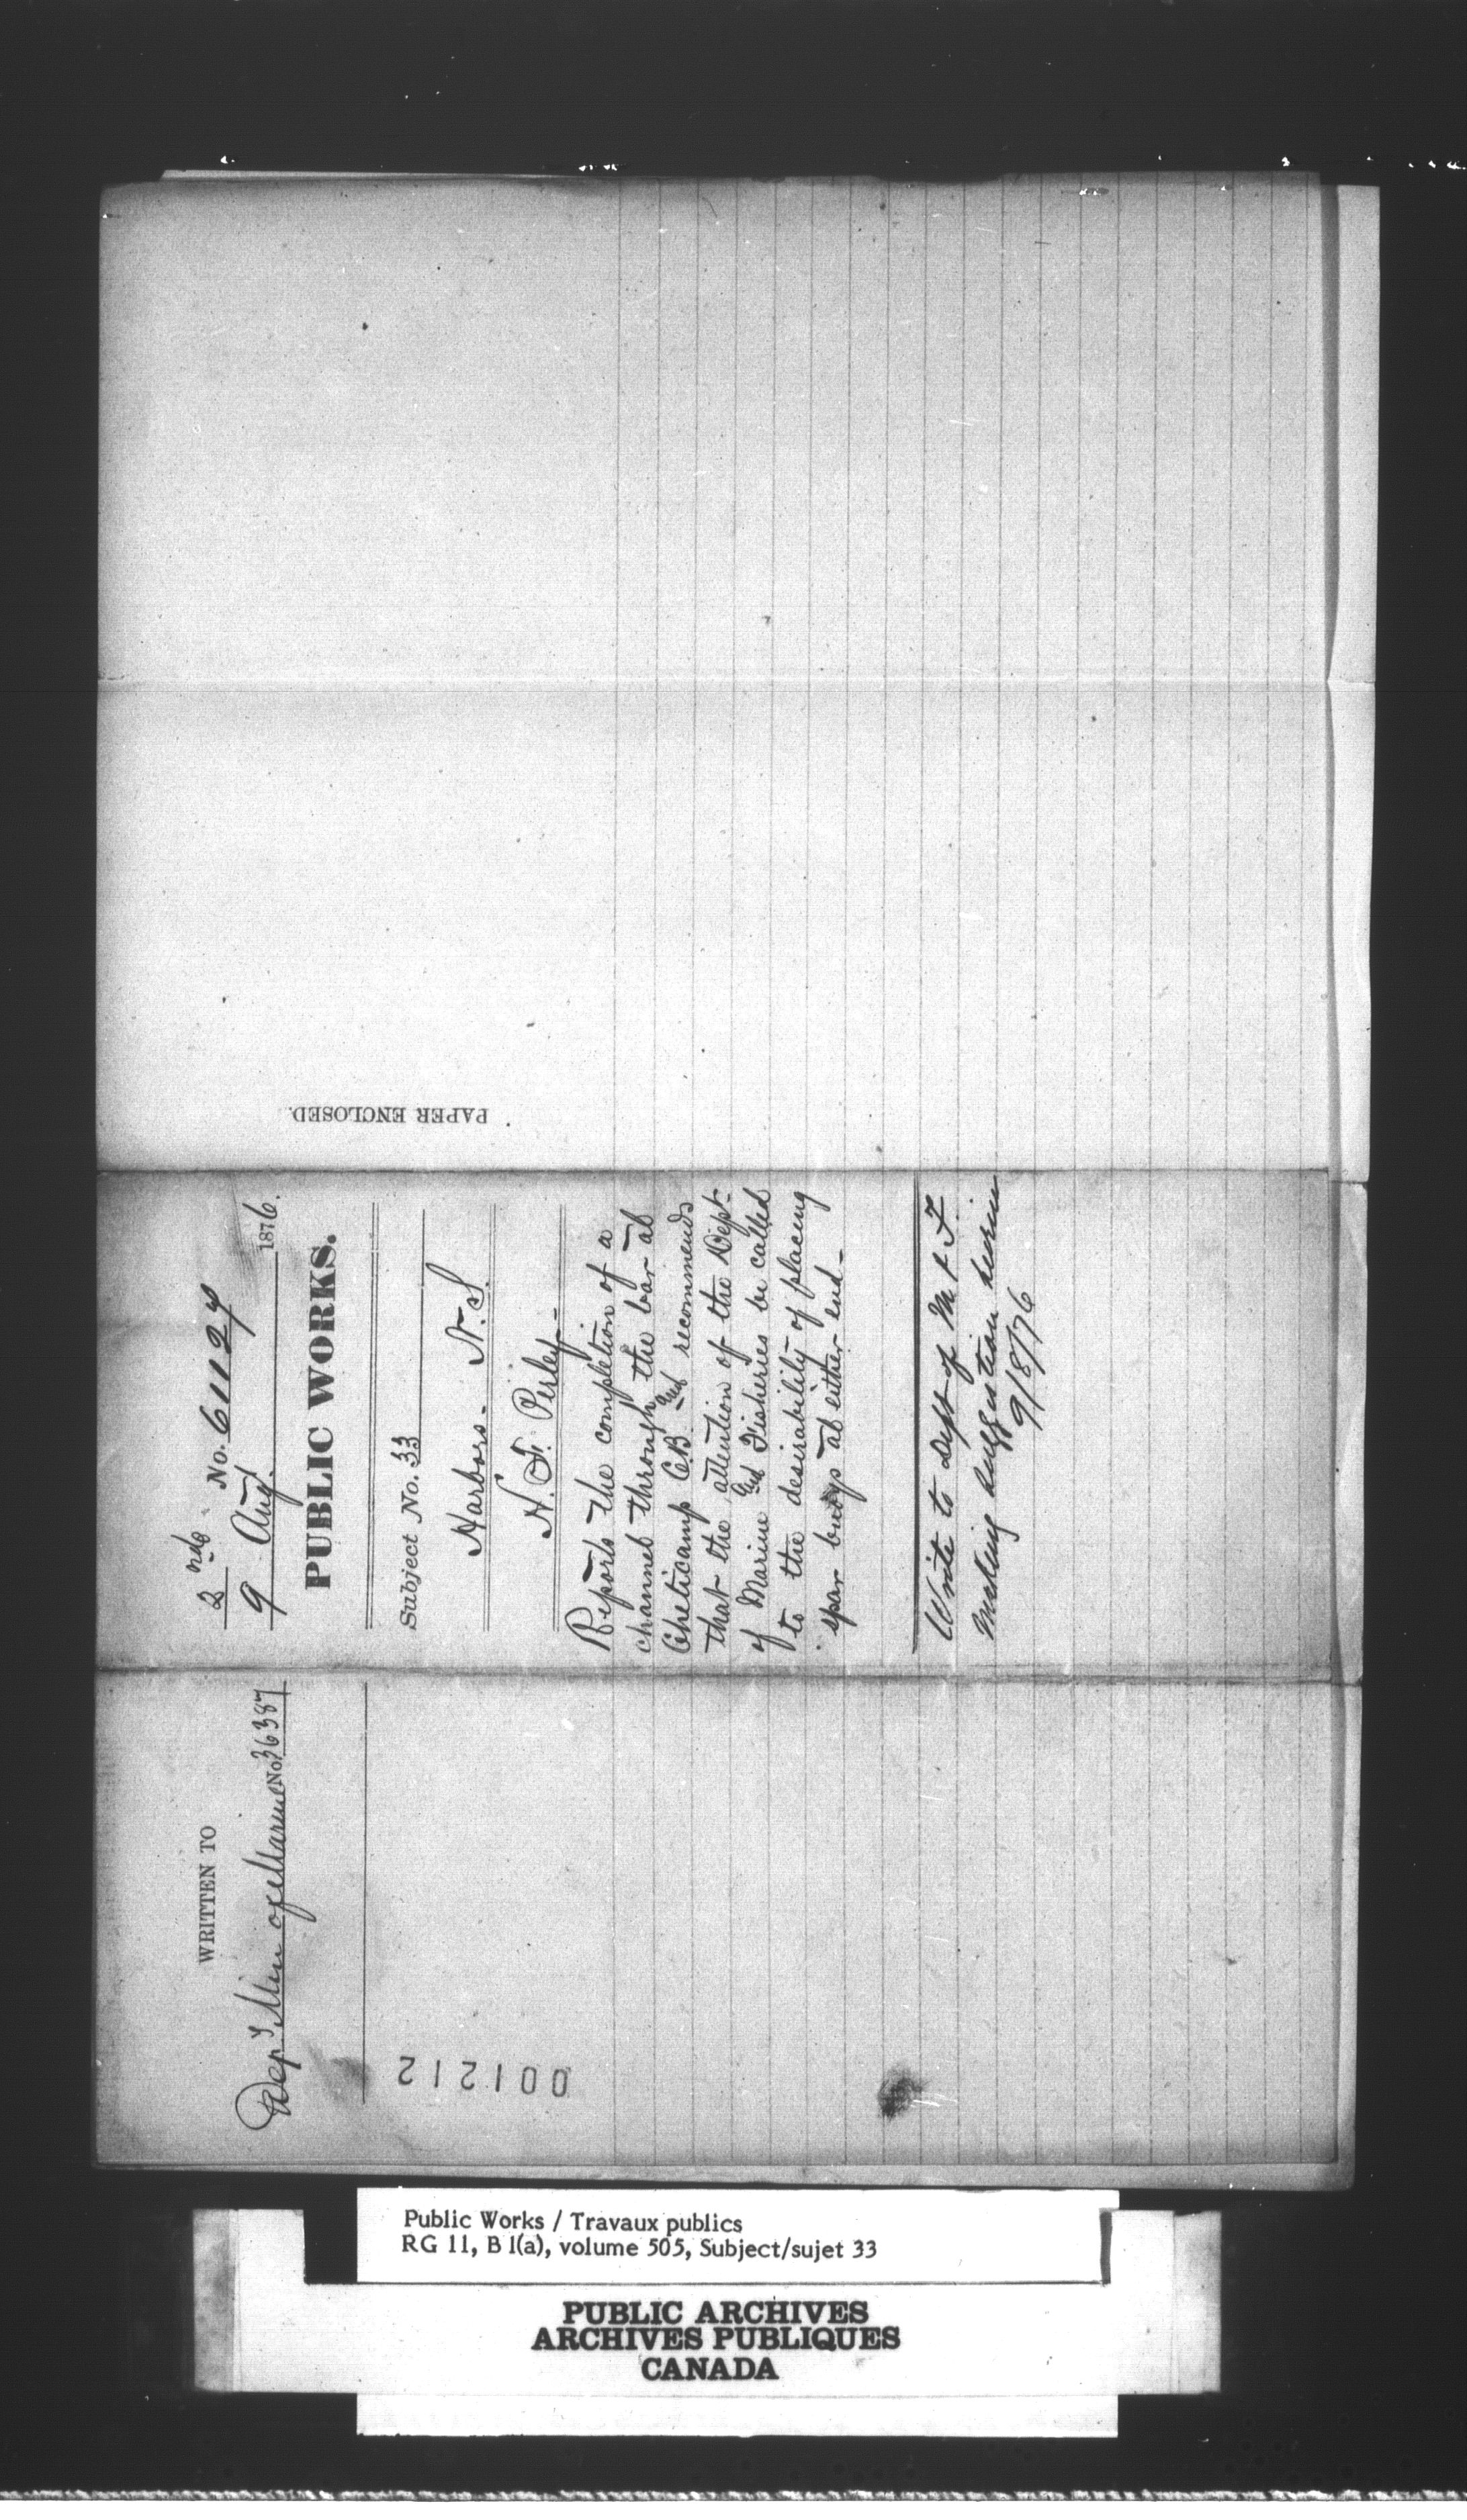 PAPER ENCLOSED.
2 nd No. 61127
9 Aug. 1876.
PUBLIC WORKS.
Subject No. 33
Harbors - N.S.
H. F. Perley -
Reports the completion of a
channel through the bar at
Cheticamp C.B. and recommends
that the attention of the Dept.
of Marine and Fisheries be called
to the desirability of placing
spar buoys at either end -
Write to Dept of M & F.
making suggestion herein
9/8/76
WRITTEN TO
Dep. Min of Marine No. 36387
001212
Public Works / Travaux publics
RG 11, B 1(a), volume 505, Subject/sujet 33
PUBLIC ARCHIVES
ARCHIVES PUBLIQUES
CANADA